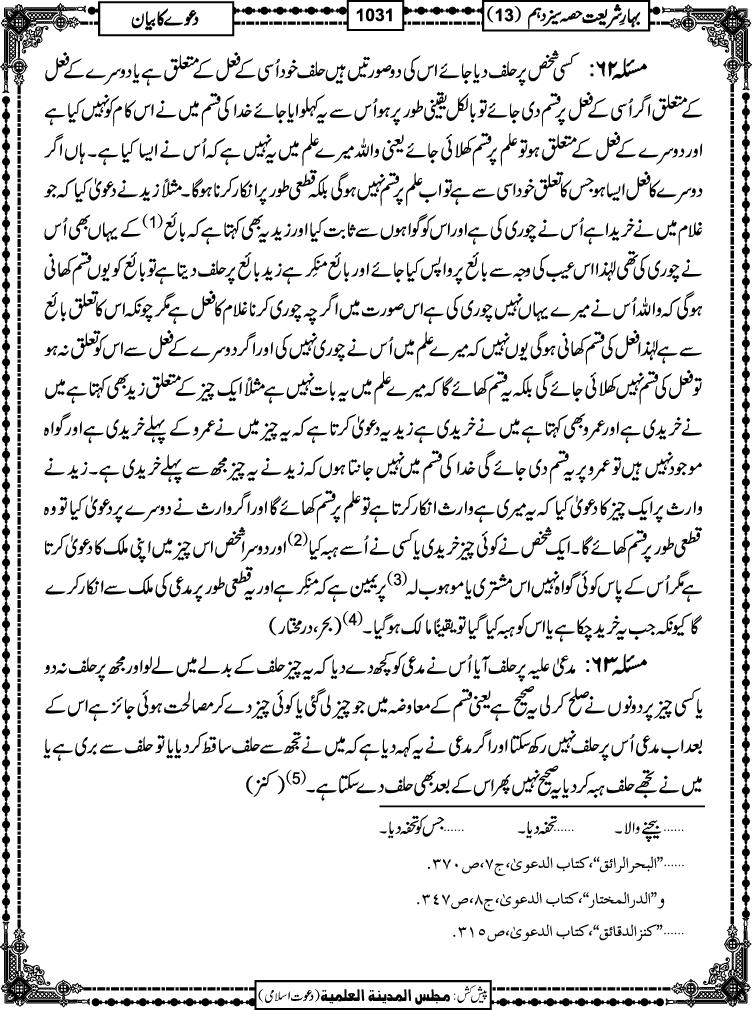 بہارِ شریعت حصہ سیزدہم (13)
1031
دعوے کا بیان
مسئلہ ۶۲: کسی شخص پر حلف دیا جائے اس کی دو صورتیں ہیں حلف خود اُسی کے فعل کے متعلق ہے یا دوسرے کے فعل
کے متعلق اگر اُسی کے فعل پر قسم دی جائے تو بالکل یقینی طور پر ہو اُس سے یہ کہلوایا جائے خدا کی قسم میں نے اس کام کو نہیں کیا ہے
اور دوسرے کے فعل کے متعلق ہو تو علم پر قسم کھلائی جائے یعنی واللہ میرے علم میں یہ نہیں ہے کہ اُس نے ایسا کیا ہے۔ ہاں اگر
دوسرے کا فعل ایسا ہو جس کا تعلق خود اسی سے ہے تو اب علم پر قسم نہیں ہوگی بلکہ قطعی طور پر انکار کرنا ہوگا۔ مثلاً زید نے دعویٰ کیا کہ جو
غلام میں نے خریدا ہے اُس نے چوری کی ہے اور اس کو گواہوں سے ثابت کیا اور زید یہ بھی کہتا ہے کہ بائع (1) کے یہاں بھی اُس
نے چوری کی تھی لہٰذا اس عیب کی وجہ سے بائع پر واپس کیا جائے اور بائع منکِر ہے زید بائع پر حلف دیتا ہے تو بائع کو یوں قسم کھانی
ہوگی کہ واللہ اُس نے میرے یہاں نہیں چوری کی ہے اس صورت میں اگرچہ چوری کرنا غلام کا فعل ہے مگر چونکہ اس کا تعلق بائع
سے ہے لہٰذا فعل کی قسم کھانی ہوگی یوں نہیں کہ میرے علم میں اُس نے چوری نہیں کی اور اگر دوسرے کے فعل سے اس کو تعلق نہ ہو
تو فعل کی قسم نہیں کھلائی جائے گی بلکہ یہ قسم کھائے گا کہ میرے علم میں یہ بات نہیں ہے مثلاً ایک چیز کے متعلق زید بھی کہتا ہے میں
نے خریدی ہے اور عمرو بھی کہتا ہے میں نے خریدی ہے زید یہ دعویٰ کرتا ہے کہ یہ چیز میں نے عمرو کے پہلے خریدی ہے اور گواہ
موجود نہیں ہیں تو عمرو پر یہ قسم دی جائے گی خدا کی قسم میں نہیں جانتا ہوں کہ زید نے یہ چیز مجھ سے پہلے خریدی ہے۔ زید نے
وارث پر ایک چیز کا دعویٰ کیا کہ یہ میری ہے وارث انکار کرتا ہے تو علم پر قسم کھائے گا اور اگر وارث نے دوسرے پر دعویٰ کیا تو وہ
قطعی طور پر قسم کھائے گا۔ ایک شخص نے کوئی چیز خریدی یا کسی نے اُسے ہبہ کیا (2) اور دوسرا شخص اس چیز میں اپنی ملک کا دعویٰ کرتا
ہے مگر اُس کے پاس کوئی گواہ نہیں اس مشتری یا موہوب لہ (3) پر یمین ہے کہ منکِر ہے اور یہ قطعی طور پر مدعی کی ملک سے انکار کرے
گا کیونکہ جب یہ خرید چکا ہے یا اس کو ہبہ کیا گیا تو یقینًا مالک ہوگیا۔ (4) (بحر، درمختار)
مسئلہ ۶۳: مدعیٰ علیہ پر حلف آیا اُس نے مدعی کو کچھ دے دیا کہ یہ چیز حلف کے بدلے میں لے لو اور مجھ پر حلف نہ دو
یا کسی چیز پر دونوں نے صلح کر لی یہ صحیح ہے یعنی قسم کے معاوضہ میں جو چیز لی گئی یا کوئی چیز دے کر مصالحت ہوئی جائز ہے اس کے
بعد اب مدعی اُس پر حلف نہیں رکھ سکتا اور اگر مدعی نے یہ کہہ دیا ہے کہ میں نے تجھ سے حلف ساقط کر دیا یا تو حلف سے بری ہے یا
میں نے تجھے حلف ہبہ کر دیا یہ صحیح نہیں پھر اس کے بعد بھی حلف دے سکتا ہے۔ (5) (کنز)
......بیچنے والا۔ ......تحفہ دیا۔ ......جس کو تحفہ دیا۔
......”البحرالرائق“، کتاب الدعویٰ، ج۷، ص۳۷۰.
و ”الدرالمختار“، کتاب الدعویٰ، ج۸، ص۳۴۷.
......”کنزالدقائق“، کتاب الدعویٰ، ص۳۱۵.
پیش کش: مجلس المدینة العلمیة (دعوت اسلامی)